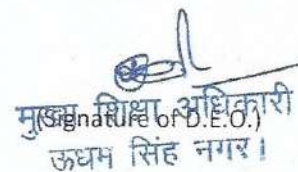 मुख्य शिक्षा अधिकारी
(Signature of D.E.O.)
ऊधम सिंह नगर।